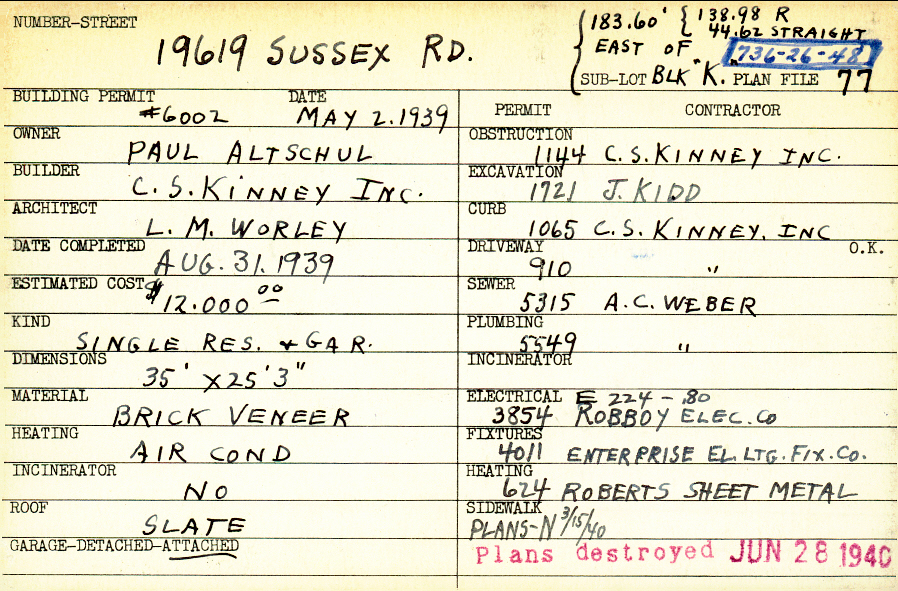 NUMBER-STREET
19619 SUSSEX RD.
183.60' { 138.98 R
44.62 STRAIGHT
EAST OF 736-26-48
SUB-LOT BLK "K". PLAN FILE 77
BUILDING PERMIT DATE
#6002 MAY 2.1939
OWNER
PAUL ALTSCHUL
BUILDER
C.S. KINNEY INC.
ARCHITECT
L. M. WORLEY
DATE COMPLETED
AUG. 31. 1939
ESTIMATED COST
$12.000 00
KIND
SINGLE RES. + GAR.
DIMENSIONS
35' x 25' 3"
MATERIAL
BRICK VENEER
HEATING
AIR COND
INCINERATOR
NO
ROOF
SLATE
GARAGE-DETACHED-ATTACHED
PERMIT CONTRACTOR
OBSTRUCTION
1144 C.S. KINNEY INC.
EXCAVATION
1721 J. KIDD
CURB
1065 C.S. KINNEY. INC
DRIVEWAY O.K.
910 "
SEWER
5315 A.C. WEBER
PLUMBING
5549 "
INCINERATOR
ELECTRICAL E 224-.80
3854 ROBBOY ELEC. CO
FIXTURES
4011 ENTERPRISE EL. LTG. FIX. CO.
HEATING
624 ROBERTS SHEET METAL
SIDEWALK
PLANS-N 3/15/40
Plans destroyed JUN 28 1940